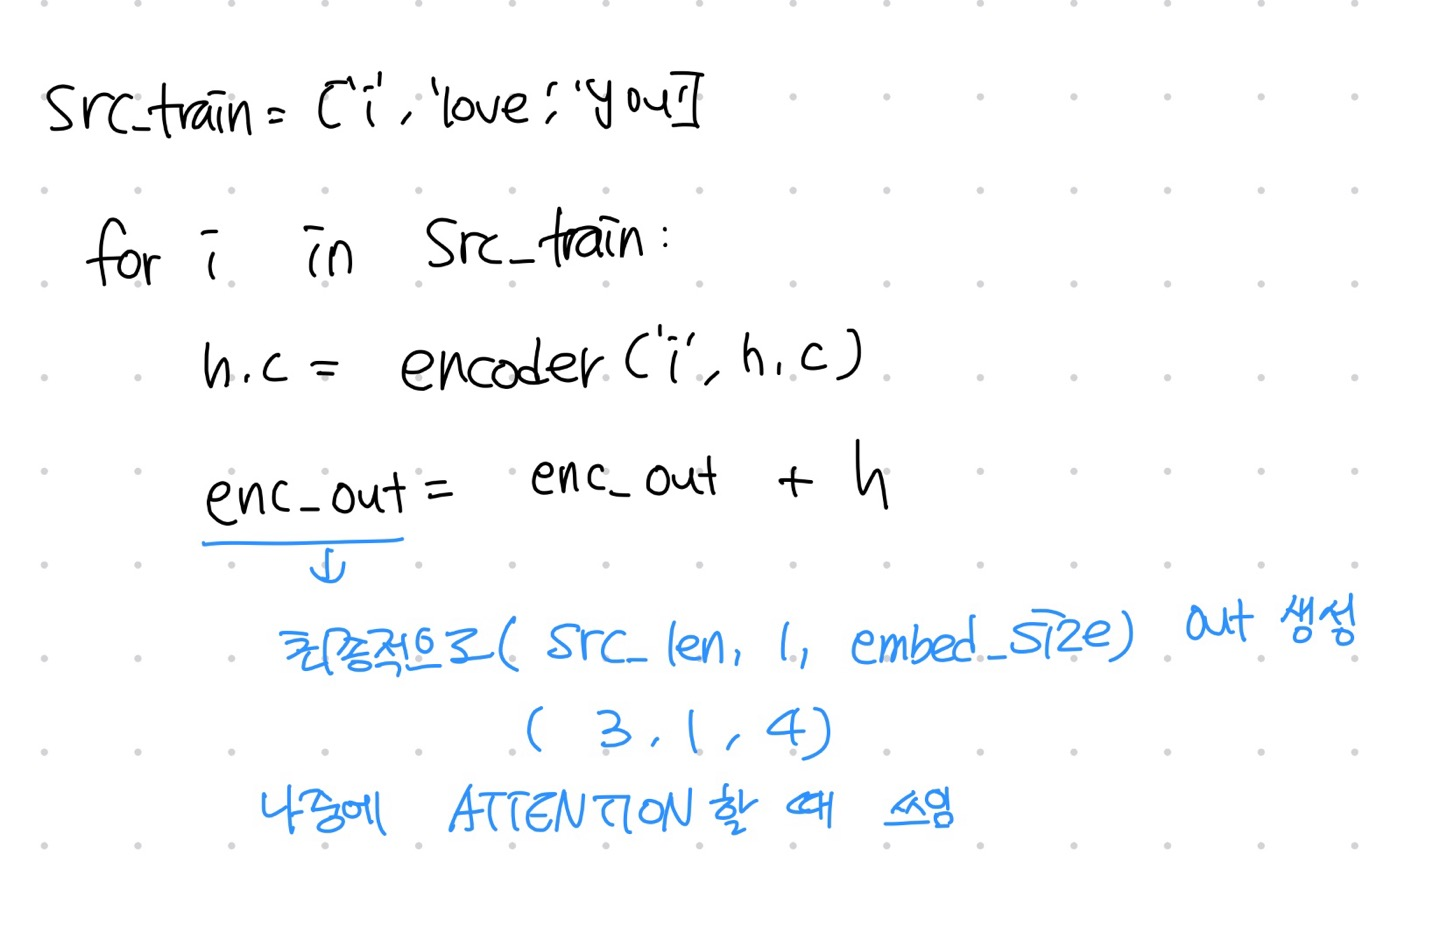 src_train = ['i', 'love', 'you']
for i in src_train:
h.c = encoder('i', h.c)
enc_out = enc_out + h
↓
최종적으로 (src_len, 1, embed_size) out 생성
(3, 1, 4)
나중에 ATTENTION 할 때 쓰임